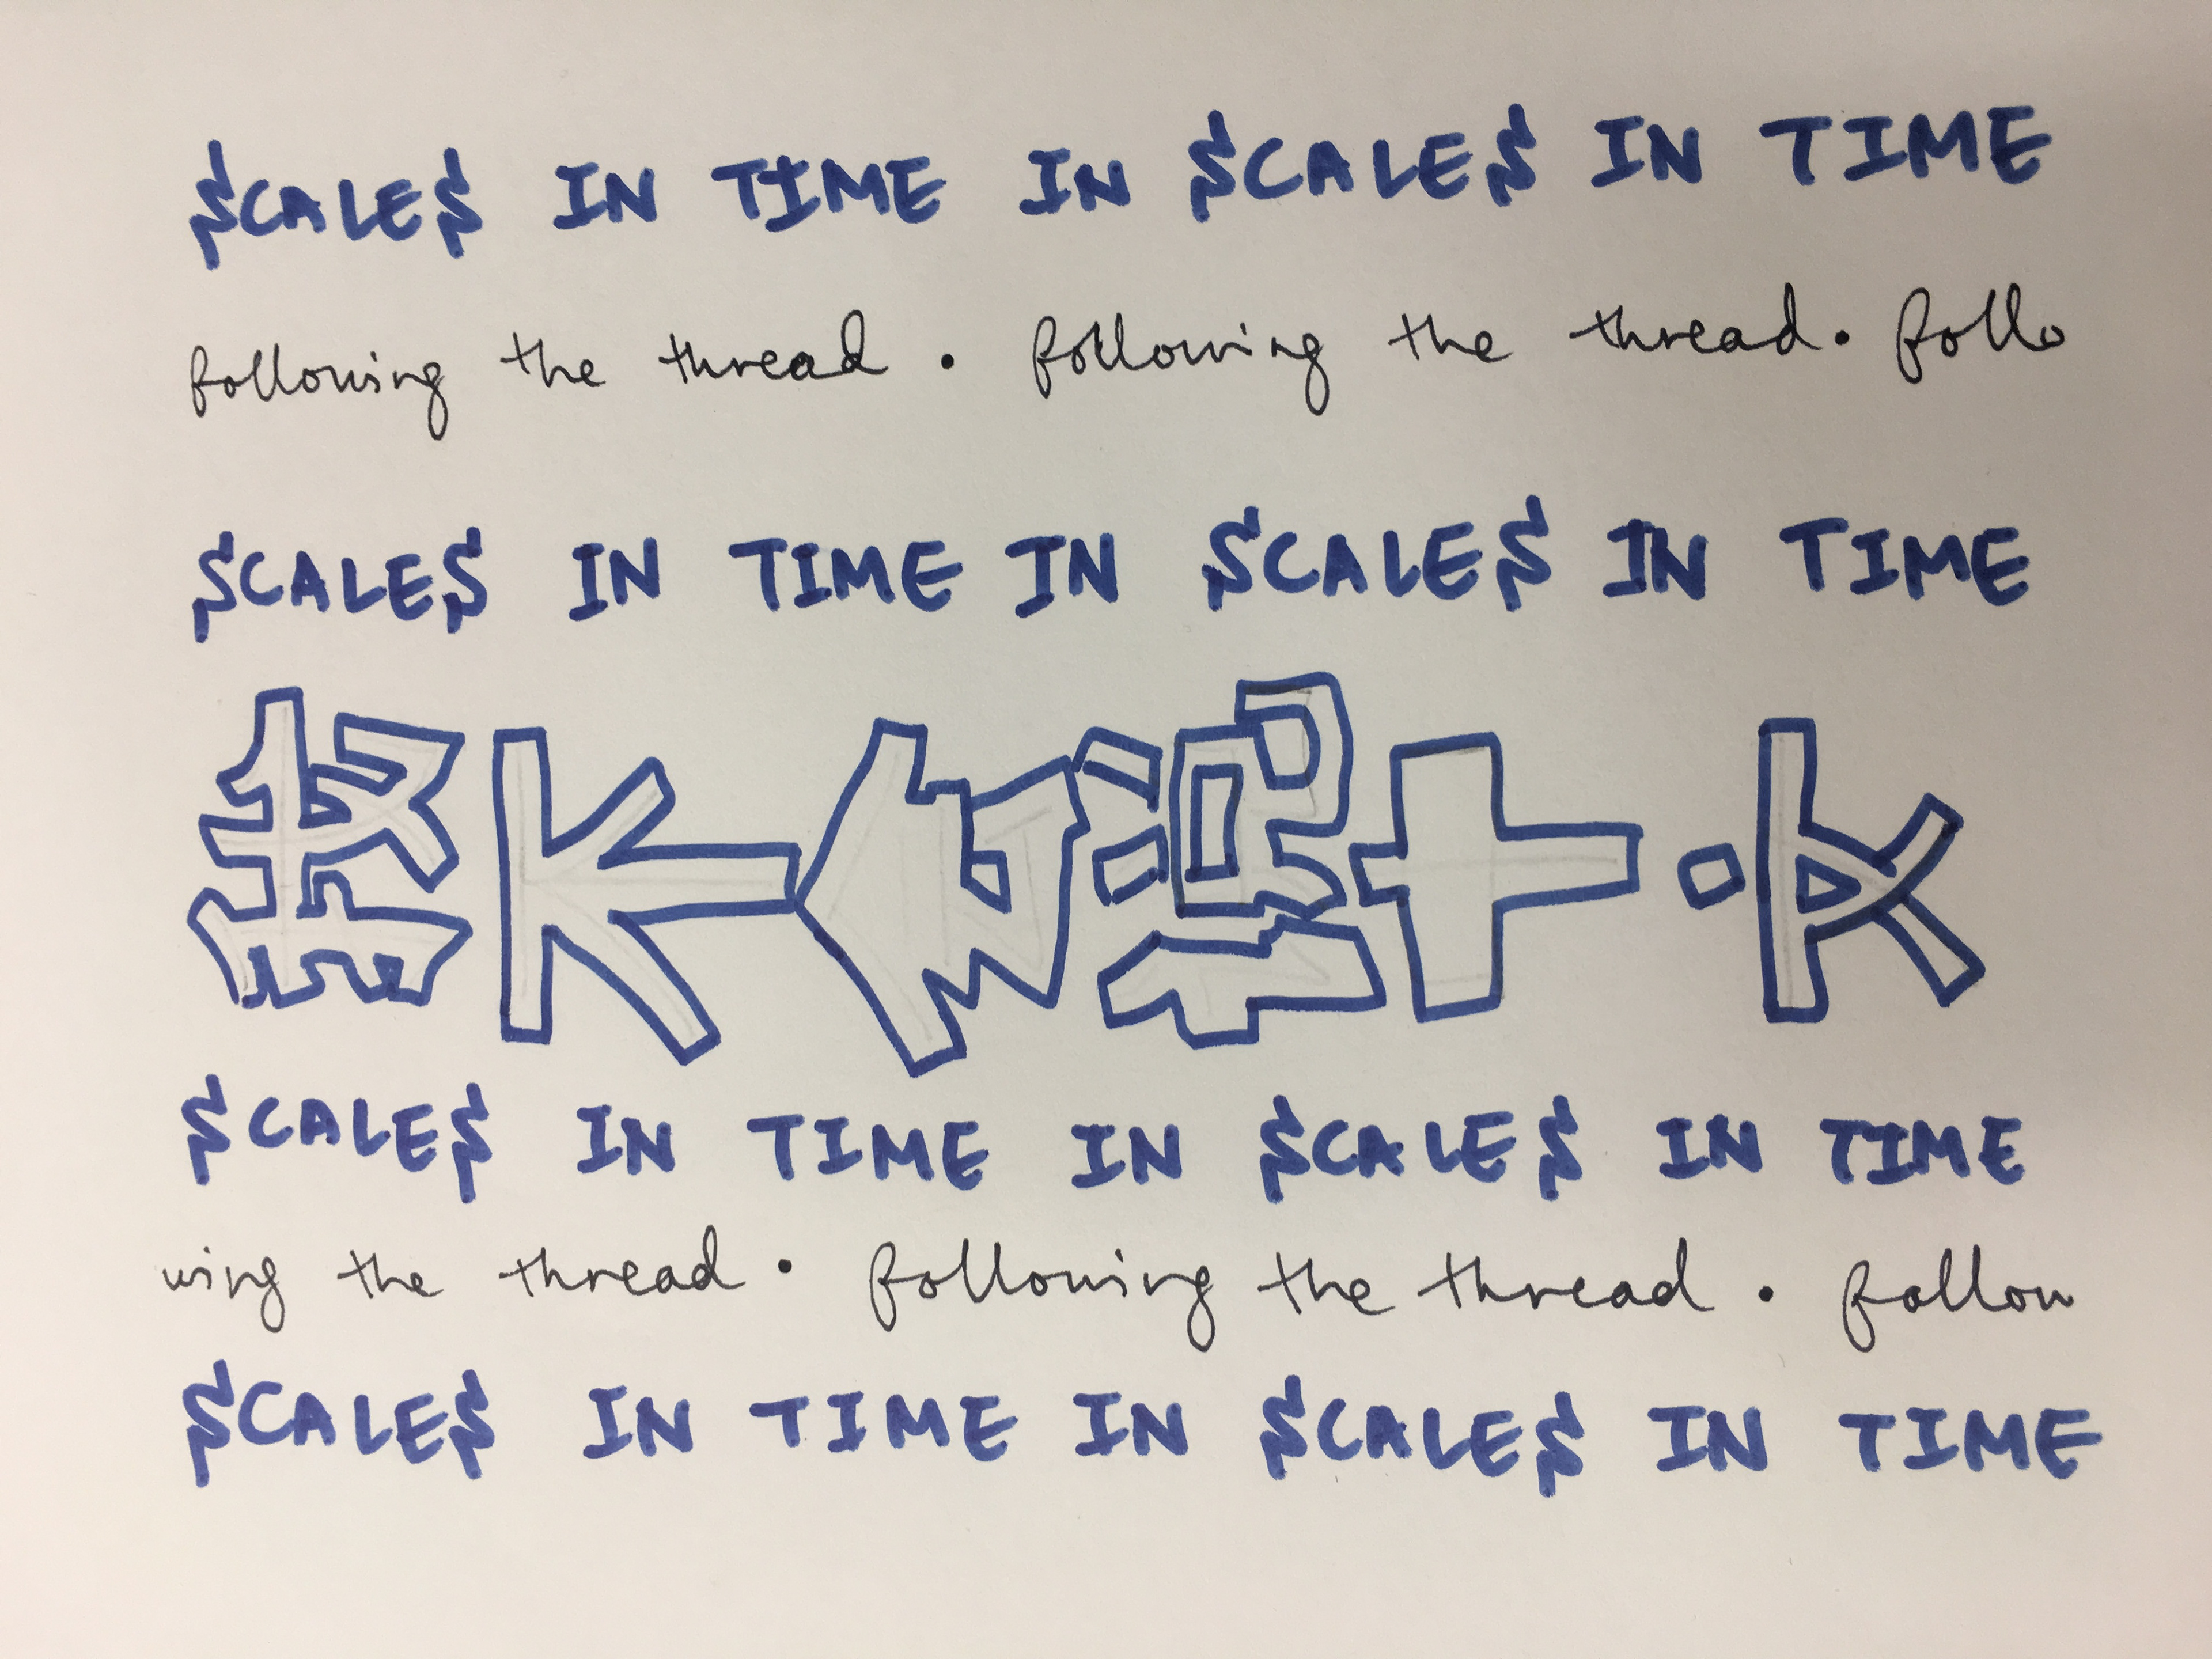 SCALES IN TIME IN SCALES IN TIME
following the thread. following the thread. follo
SCALES IN TIME IN SCALES IN TIME
SCALES IN TIME IN SCALES IN TIME
wing the thread. following the thread. follow
SCALES IN TIME IN SCALES IN TIME